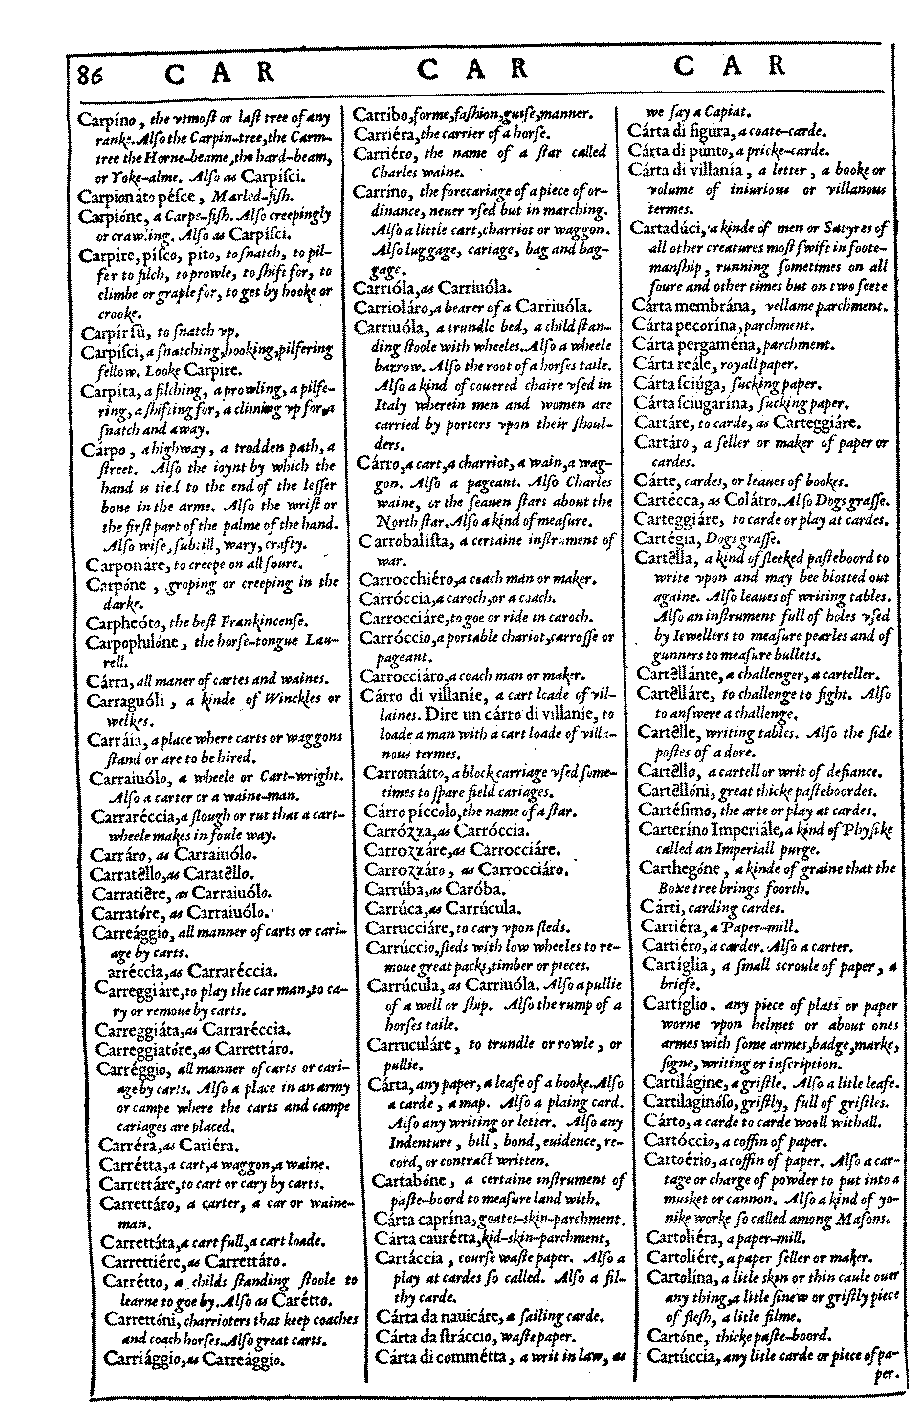 86 C A R C A R C A R
Carpíno, the vtmoſt or laſt tree of any
ranke. Alſo the Carpin-tree, the Carm-
tree the Horne-beame, the hard-beam,
or Yoke-alme. Alſo as Carpíſci.
Carpionáto péſce, Marled-fiſh.
Carpióne, a Carpe-fiſh. Alſo creepingly
or crawling. Alſo as Carpíſci.
Carpíre, píſco, píto, to ſnatch, to pil-
fer to filch, to prowle, to ſhift for, to
climbe or graple for, to get by hooke or
crooke.
Carpír ſù, to ſnatch vp.
Carpíſci, a ſnatching, hooking, pilfering
fellow. Looke Carpíre.
Carpíta, a filching, a prowling, a pilfe-
ring, a ſhifting for, a climing vp for, a
ſnatch and away.
Cárpo, a highway, a trodden path, a
ſtreet. Alſo the ioynt by which the
hand is tied to the end of the leſſer
bone in the arme. Alſo the wriſt or
the firſt part of the palme of the hand.
Alſo wiſe, ſubtill, wary, crafty.
Carponáre, to creepe on all foure.
Carpóne, groping or creeping in the
darke.
Carpheóto, the beſt Frankincenſe.
Carpophilóne, the horſe-tongue Lau-
rell.
Cárra, all maner of cartes and waines.
Carraguóli, a kinde of Winckles or
welkes.
Carráia, a place where carts or waggons
ſtand or are to be hired.
Carraiuólo, a wheele or Cart-wright.
Alſo a carter or a waine-man.
Carraréccia, a ſlough or rut that a cart-
wheele makes in foule way.
Carráro, as Carraiuólo.
Carratêllo, as Caratêllo.
Carratiêre, as Carraiuólo.
Carratóre, as Carraiuólo.
Carreággio, all manner of carts or cari-
age by carts.
arréccia, as Carraréccia.
Carreggiáre, to play the car man, to ca-
ry or remoue by carts.
Carreggiáta, as Carraréccia.
Carreggiatóre, as Carrettáro.
Carréggio, all manner of carts or cari-
age by carts. Alſo a place in an army
or campe where the carts and campe
cariages are placed.
Carréra, as Cariéra.
Carrétta, a cart, a waggon, a waine.
Carrettáre, to cart or cary by carts.
Carrettáro, a carter, a car or waine-
man.
Carrettáta, a cart full, a cart loade.
Carrettiére, as Carrettáro.
Carrétto, a childs ſtanding ſtoole to
learne to goe by. Alſo as Carétto.
Carrettóni, charrioters that keep coaches
and coach horſes. Alſo great carts.
Carriággio, as Carreággio.
Carríbo, forme, faſhion, guiſe, manner.
Carriéra, the carrier of a horſe.
Carriéro, the name of a ſtar called
Charles waine.
Carríno, the forecariage of a piece of or-
dinance, neuer vſed but in marching.
Alſo a little cart, charriot or waggon.
Alſo luggage, cariage, bag and bag-
gage.
Carrióla, as Carriuóla.
Carrioláro, a bearer of a Carriuóla.
Carriuóla, a trundle bed, a child ſtan-
ding ſtoole with wheeles. Alſo a wheele
barrow. Alſo the root of a horſes taile.
Alſo a kind of couered chaire vſed in
Italy wherein men and women are
carried by porters vpon their ſhoul-
ders.
Cárro, a cart, a charriot, a wain, a wag-
gon. Alſo a pageant. Alſo Charles
waine, or the ſeauen ſtars about the
North ſtar. Alſo a kind of meaſure.
Carrobaliſta, a certaine inſtrument of
war.
Carrocchiéro, a coach man or maker.
Carróccia, a caroch, or a coach.
Carrocciáre, to goe or ride in caroch.
Carróccio, a portable chariot, carroſſe or
pageant.
Carrocciáro, a coach man or maker.
Cárro di villaníe, a cart loade of vil-
laines. Dire un cárro di villaníe, to
loade a man with a cart loade of villa-
nous termes.
Carromátto, a block carriage vſed ſome-
times to ſpare field cariages.
Cárro píccolo, the name of a ſtar.
Carrózza, as Carróccia.
Carrozzáre, as Carrocciáre.
Carrozzáro, as Carrocciáro.
Carrúba, as Caróba.
Carrúca, as Carrúcula.
Carrucciáre, to cary vpon ſleds.
Carrúccio, ſleds with low wheeles to re-
moue great packs, timber or pieces.
Carrúcula, as Carriuóla. Alſo a pullie
of a well or ſhip. Alſo the rump of a
horſes taile.
Carruculáre, to trundle or rowle, or
pullie.
Cárta, any paper, a leafe of a booke. Alſo
a carde, a map. Alſo a plaing card.
Alſo any writing or letter. Alſo any
Indenture, bill, bond, euidence, re-
cord, or contract written.
Cartabóne, a certaine inſtrument of
paſte-boord to meaſure land with.
Cárta caprína, goates-skin-parchment.
Cárta caurétta, kid-skin-parchment,
Cartáccia, courſe waſte paper. Alſo a
play at cardes ſo called. Alſo a fil-
thy carde.
Cárta da nauicáre, a ſailing carde.
Cárta da ſtráccio, waſte paper.
Cárta di commétta, a writ in law, as
we ſay a Capiat.
Cárta di figura, a coate-carde.
Cárta di púnto, a pricke-carde.
Cárta di villanía, a letter, a booke or
volume of iniurious or villanous
termes.
Cartadúci, a kinde of men or Satyres of
all other creatures moſt ſwift in foote-
manſhip, running ſometimes on all
foure and other times but on two feete
Cárta membrána, vellame parchment.
Cárta pecorína, parchment.
Cárta pergaména, parchment.
Cárta reále, royall paper.
Cárta ſciúga, ſucking paper.
Cárta ſciugarína, ſucking paper.
Cartáre, to carde, as Carteggiáre.
Cartáro, a ſeller or maker of paper or
cardes.
Cárte, cardes, or leaues of bookes.
Cartécca, as Colátro. Alſo Dogs graſſe.
Carteggiáre, to carde or play at cardes.
Cartégia, Dogs graſſe.
Cartêlla, a kind of ſleeked paſteboord to
write vpon and may bee blotted out
againe. Alſo leaues of writing tables.
Alſo an inſtrument full of holes vſed
by Iewellers to meaſure pearles and of
gunners to meaſure bullets.
Cartêllánte, a challenger, a carteller.
Cartêlláre, to challenge to fight. Alſo
to anſwere a challenge.
Cartêlle, writing tables. Alſo the ſide
poſtes of a dore.
Cartêllo, a cartell or writ of defiance.
Cartêllóni, great thicke paſteboordes.
Cartéſimo, the arte or play at cardes.
Carteríno Imperiále, a kind of Phyſike
called an Imperiall purge.
Carthegóne, a kinde of graine that the
Boxe tree brings foorth.
Cárti, carding cardes.
Cartiéra, a Paper-mill.
Cartiéro, a carder. Alſo a carter.
Cartíglia, a ſmall ſcroule of paper, a
briefe.
Cartíglio. any piece of plate or paper
worne vpon helmet or about ones
armes with ſome armes, badge, marke,
ſigne, writing or inſcription.
Cartilágine, a griſtle. Alſo a litle leafe.
Cartilaginóſo, griſtly, full of griſtles.
Cárto, a carde to carde wooll withall.
Cartóccio, a coffin of paper.
Cartoério, a coffin of paper. Alſo a car-
tage or charge of powder to put into a
musket or cannon. Alſo a kind of yo-
nike worke ſo called among Maſons.
Cartoliéra, a paper-mill.
Cartoliére, a paper ſeller or maker.
Cartolína, a litle skin or thin caule ouer
any thing, a litle ſinew or griſtly piece
of fleſh, a litle filme.
Cartóne, thicke paſte-boord.
Cartúccia, any litle carde or piece of pa-
per.